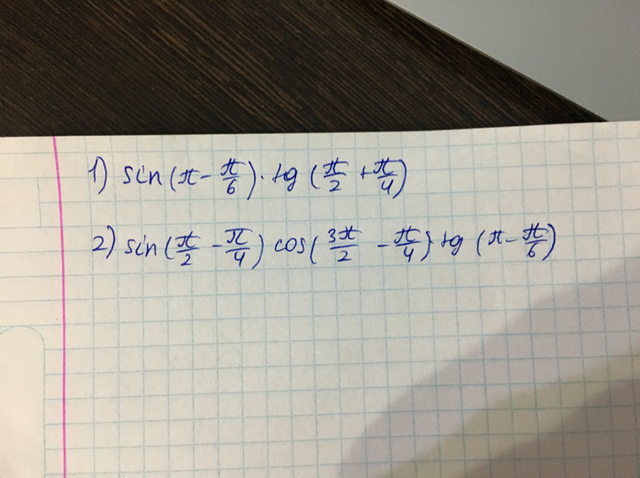 1) sin(π - π/6) · tg(π/2 + π/4)
2) sin(π/2 - π/4) cos(3π/2 - π/4) tg(π - π/6)